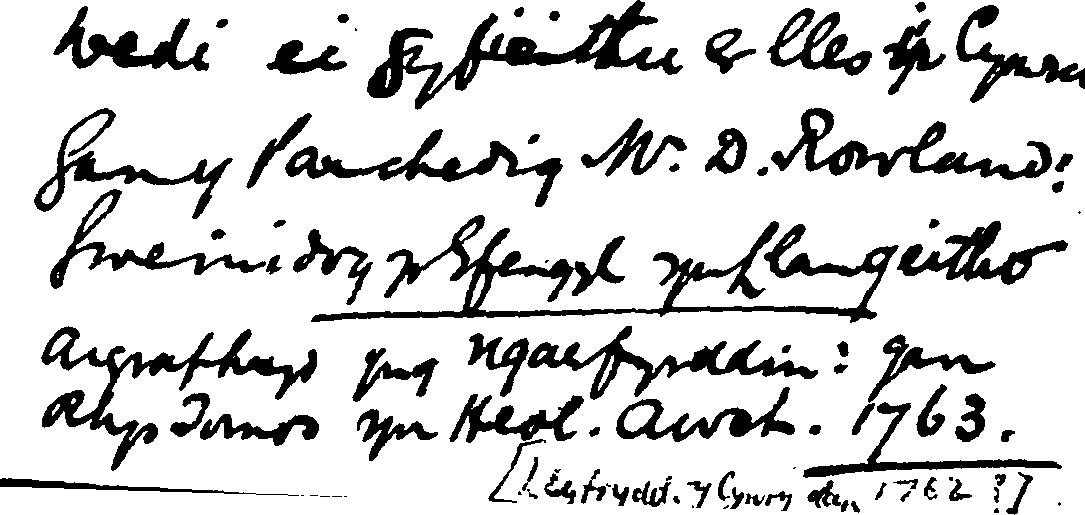 wedi ei gyfieithu er lles i'r Cymru
Gan y Parchedig Mr. D. Rowland:
Gweinidog yr Efengyl yn Llangeitho
Argraffwyd yng Ngaerfyrddin: gan
Rhys Tomos yn Heol. Awst. 1763.
[Llyfrydd. y Cymry dan 1762?]